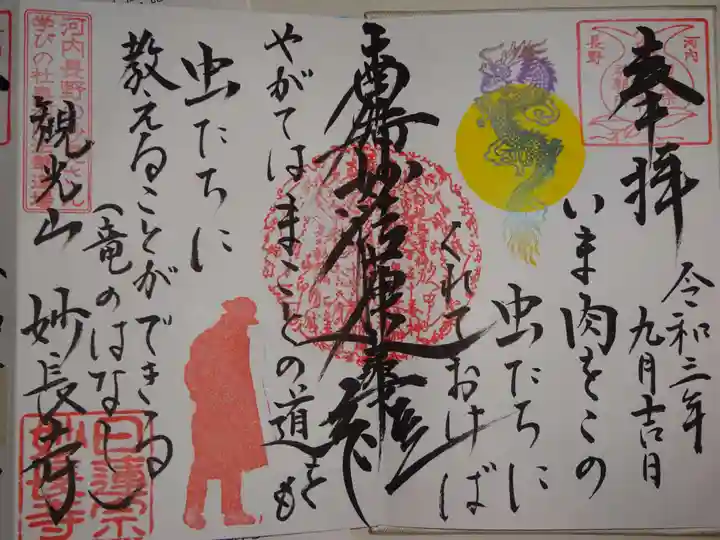 奉拝
河内
長野
令和三年
九月吉日
いま肉をこの
虫たちに
くれておけば
南無妙法蓮華経
やがてはまことの道をも
虫たちに
教えることができる
(竜のはなし)
観光山 妙長寺
河内長野
学びの社
日蓮宗
妙長寺